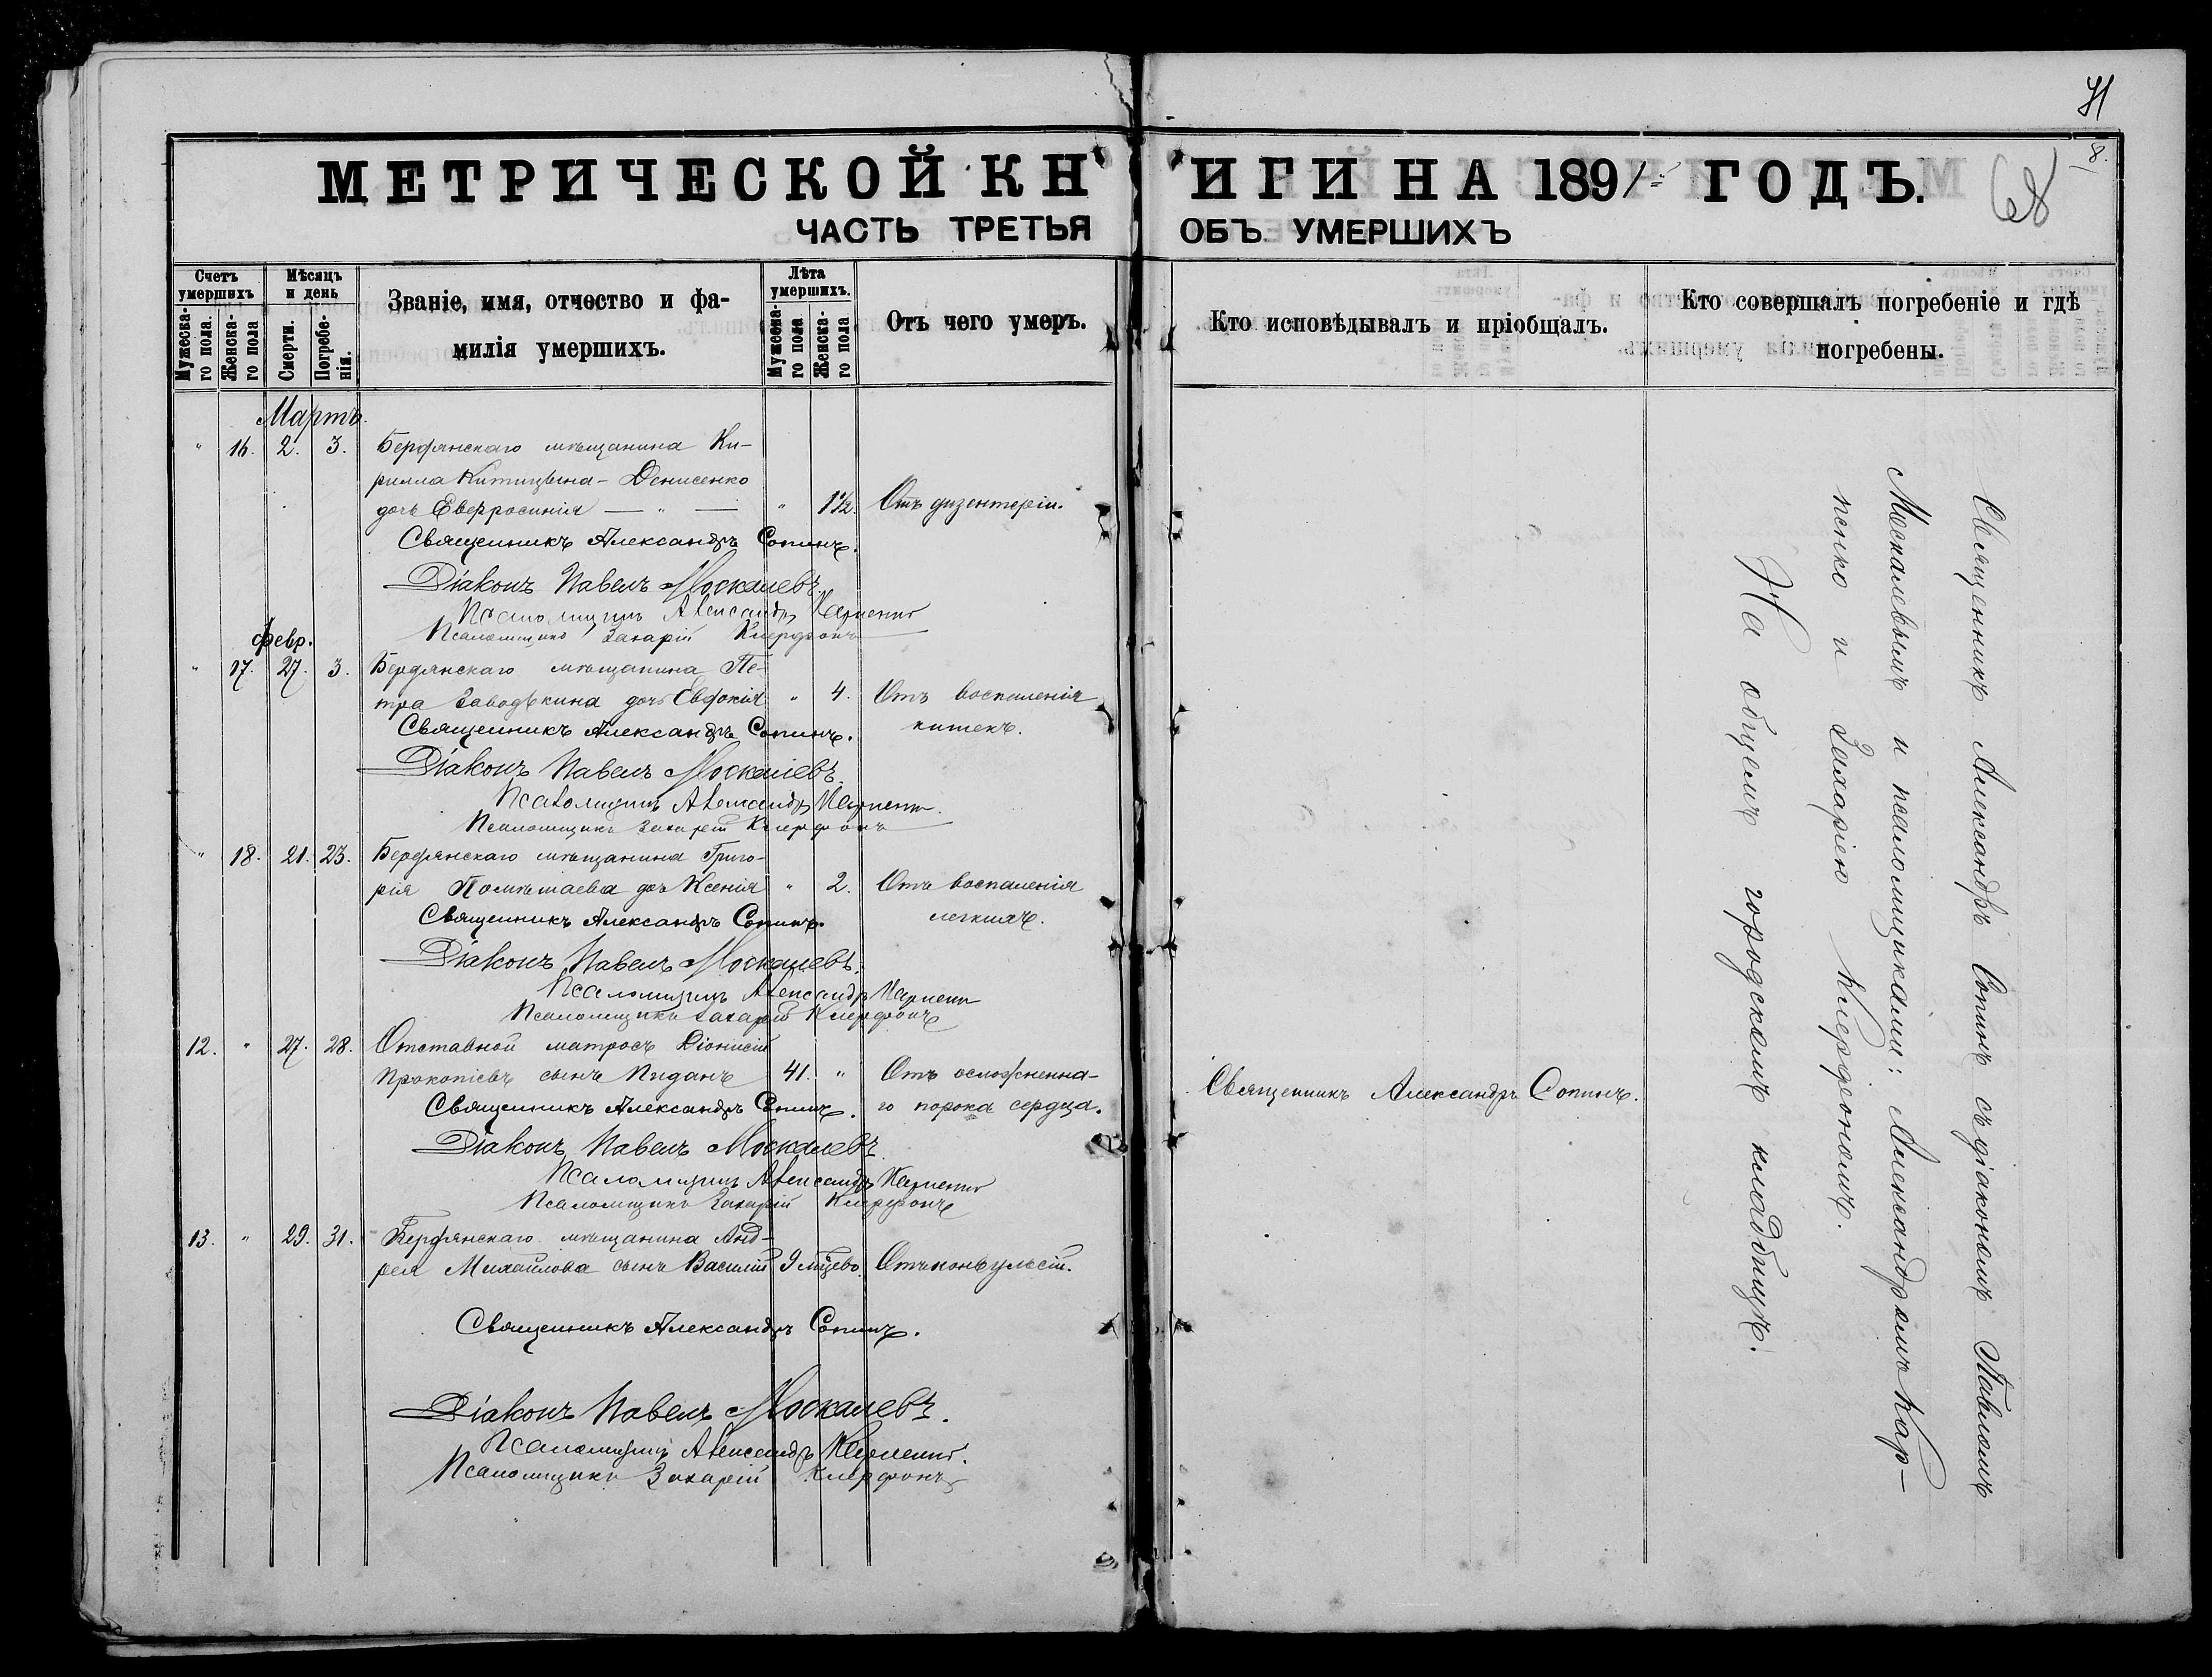 71
8.
68
МЕТРИЧЕСКОЙ КНИГИ НА 1891 ГОДЪ.
ЧАСТЬ ТРЕТЬЯ ОБЪ УМЕРШИХЪ
Счетъ умершихъ
Мужеска-го пола.
Женска-го пола
Мѣсяцъ и день
Смерти.
Погребе-нія.
Званіе, имя, отчество и фа-
милія умершихъ.
Лѣта умершихъ.
Мужеска-го пола
Женска-го пола
Отъ чего умеръ.
Кто исповѣдывалъ и пріобщалъ.
Кто совершалъ погребеніе и гдѣ
погребены.
Мартъ.
" 16. 2. 3. Бердянскаго мѣщанина Ки-
рилла Денисенко
дочь Евфросинія — " — " 1 1/2. Отъ дизентеріи.
Священникъ Александръ Сопинъ.
Діаконъ Павелъ Москалевъ.
Псаломщикъ Александръ Карпенко
Псаломщикъ Захарій
Февр.
" 17. 27. 3. Бердянскаго мѣщанина Пе-
тра Заводѣкина дочь Евдокія " 4. Отъ воспаленія
кишекъ.
Священникъ Александръ Сопинъ.
Діаконъ Павелъ Москалевъ.
Псаломщикъ Александръ Карпенко.
Псаломщикъ Захарій
" 18. 21. 23. Бердянскаго мѣщанина Григо-
рія дочь Ксенія " 2. Отъ воспаленія
легкихъ.
Священникъ Александръ Сопинъ.
Діаконъ Павелъ Москалевъ.
Псаломщикъ Александръ Карпенко
Псаломщикъ Захарій
12. " 27. 28. Отставной матросъ Діонисій
Прокопіевъ сынъ Пиданъ 41. " Отъ осложненна-
го порока сердца.
Священникъ Александръ Сопинъ.
Священникъ Александръ Сопинъ.
Діаконъ Павелъ Москалевъ.
Псаломщикъ Александръ Карпенко
Псаломщикъ Захарій
13. " 29. 31. Бердянскаго мѣщанина Анд-
рея Михайлова сынъ Василій 9 мѣцевъ. Отъ конвульсій.
Священникъ Александръ Сопинъ.
Діаконъ Павелъ Москалевъ.
Псаломщикъ Александръ Карпенко.
Псаломщикъ Захарій
Священникъ Александръ Сопинъ съ діакономъ Павломъ
Москалевымъ и псаломщиками: Александромъ Кар-
пенко и Захаріею
На общемъ городскомъ кладбищѣ.